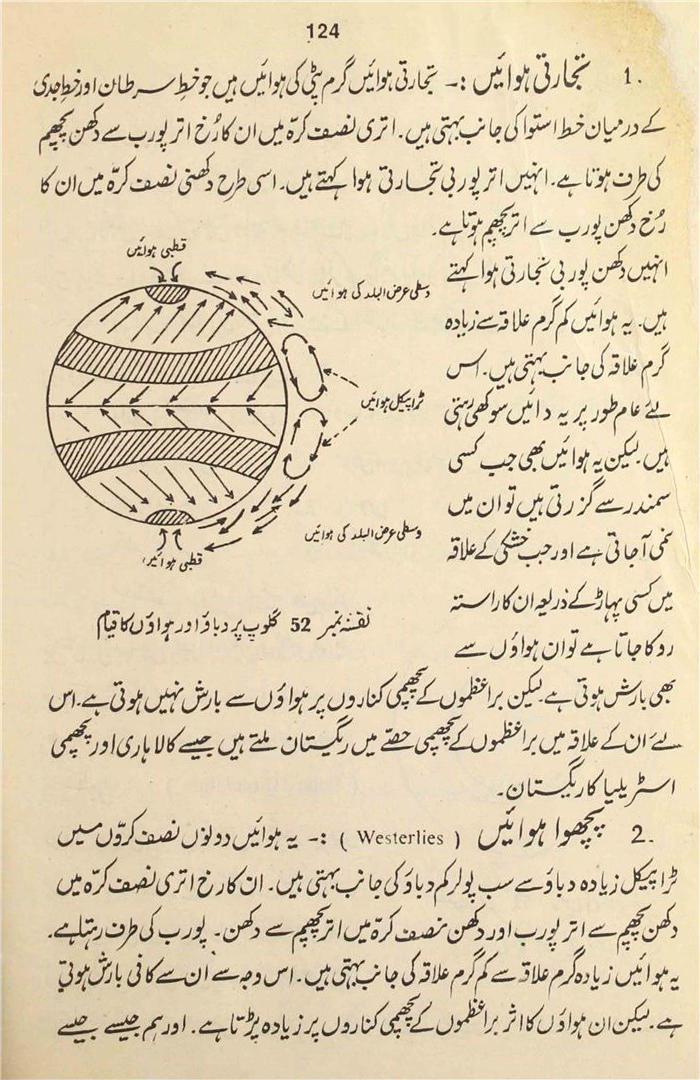 124
1. تجارتی ہوائیں :۔ تجارتی ہوائیں گرم پٹی کی ہوائیں ہیں جو خط سرطان اور خط جدی
کے درمیان خط استوا کی جانب بہتی ہیں۔ اتری نصف کرّہ میں ان کا رُخ اتر پورب سے دکھن پچھم
کی طرف ہوتا ہے۔ انہیں اتر پوربی تجارتی ہوا کہتے ہیں۔ اسی طرح دکھنی نصف کرّہ میں ان کا
رُخ دکھن پورب سے اتر پچھم ہوتا ہے۔
انہیں دکھن پوربی تجارتی ہوا کہتے
ہیں۔ یہ ہوائیں کم گرم علاقہ سے زیادہ
گرم علاقہ کی جانب بہتی ہیں۔ اس
لئے عام طور پر یہ دائیں سوکھی رہتی
ہیں لیکن یہ ہوائیں بھی جب کسی
سمندر سے گزرتی ہیں تو ان میں
نمی آجاتی ہے اور جب خشکی کے علاقہ
میں کسی پہاڑ کے ذریعہ ان کا راستہ
روکا جاتا ہے تو ان ہواؤں سے
قطبی ہوائیں
وسطی عرض البلد کی ہوائیں
ٹراپیکل ہوائیں
وسطی عرض البلد کی ہوائیں
قطبی ہوائیں
نقشہ نمبر 52 گلوب پر دباؤ اور ہواؤں کا قیام
بھی بارش ہوتی ہے لیکن براعظموں کے پچھمی کناروں پر ہواؤں سے بارش نہیں ہوتی ہے۔ اس
لئے ان کے علاقہ میں براعظموں کے پچھمی حصّے میں ریگستان ملتے ہیں جیسے کالاہاری اور پچھمی
اسٹریلیا کا ریگستان۔
2. پچھوا ہوائیں (Westerlies) :۔ یہ ہوائیں دونوں نصف کروّں میں
ٹراپیکل زیادہ دباؤ سے سب پولر کم دباؤ کی جانب بہتی ہیں۔ ان کا رخ اتری نصف کرّہ میں
دکھن پچھم سے اتر پورب اور دکھن نصف کرّہ میں اتر پچھم سے دکھن۔ پورب کی طرف رہتا ہے۔
یہ ہوائیں زیادہ گرم علاقہ سے کم گرم علاقہ کی جانب بہتی ہیں۔ اس وجہ سے ان سے کافی بارش ہوتی
ہے۔ لیکن ان ہواؤں کا اثر براعظموں کے پچھمی کناروں پر زیادہ پڑتا ہے۔ اور ہم جیسے جیسے